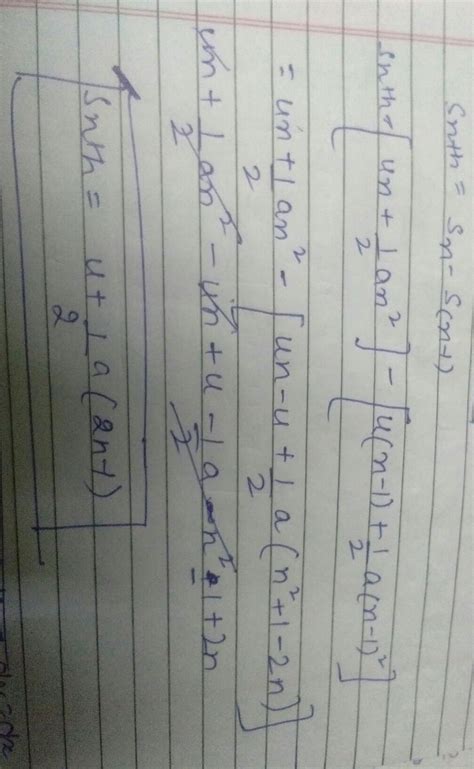 Snth = Sn - S(n-1)
Snth = [un + 1/2 an²] - [u(n-1) + 1/2 a(n-1)²]
= un + 1/2 an² - [un - u + 1/2 a(n² + 1 - 2n)]
un + 1/2 an² - un + u - 1/2 a - n² - 1 + 2n
Snth = u + 1/2 a(2n-1)